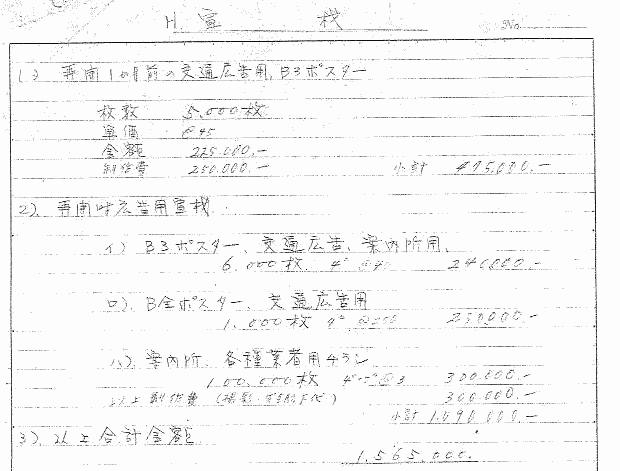 H 宣 材
No.
1) 再開1カ月前の交通広告用, B3ポスター
枚数 5,000枚
単価 @45
金額 225.000.-
制作費 250.000.- 小計 475.000.-
2). 再開時広告用宣材
イ) B3ポスター、交通広告、案内所用、
6.000枚 4° @40 240.000.-
ロ). B全ポスター、交通広告用
1.000枚 4° @250 250.000.-
ハ). 案内所、各種業者用チラシ
100.000枚 @3 300.000.-
以上制作費 300.000.-
小計 1.090.000.-
3) 以上合計金額
1.565.000.